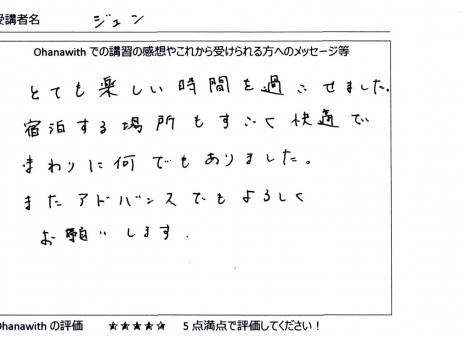 受講者名 ジュン
Ohanawith での講習の感想やこれから受けられる方へのメッセージ等
とても楽しい時間を過ごせました。
宿泊する場所もすごく快適で
まわりに何でもありました。
またアドバンスでもよろしく
お願いします.
Ohanawith の評価 ★★★★★ 5 点満点で評価してください！